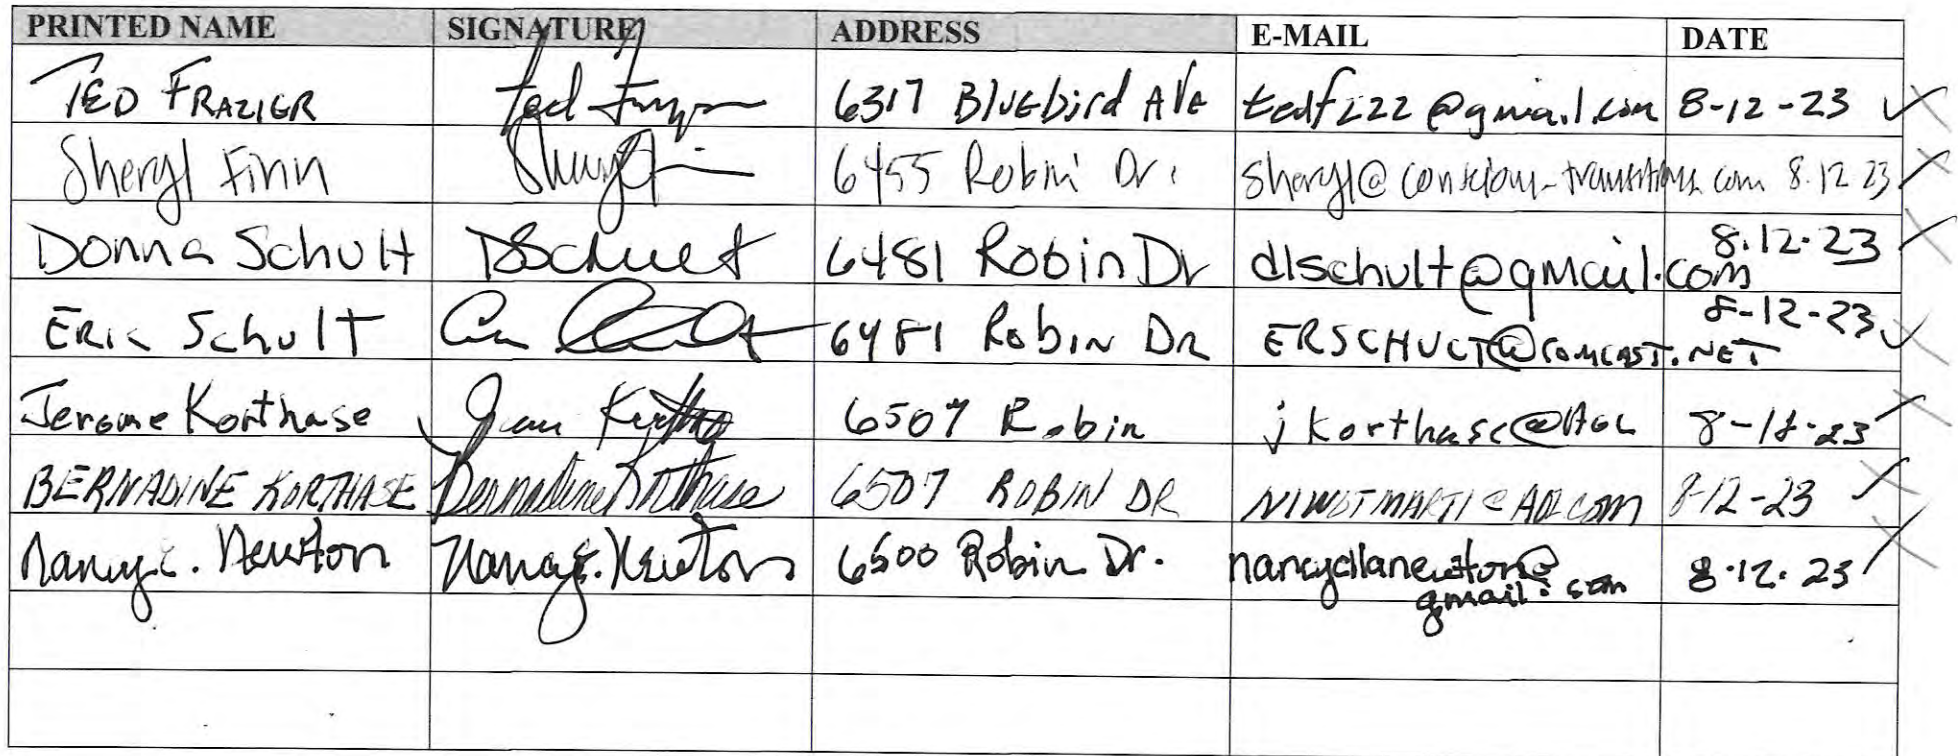 PRINTED NAME SIGNATURE ADDRESS E-MAIL DATE
TED FRAZIER Ted 6317 Bluebird Ave tedfizz@gmail.com 8-12-23
Sheryl Finn 6455 Robin Dr. sheryl@conscious-transitions.com 8.12.23
Donna Schult DSchult 6481 Robin Dr dlschult@gmail.com 8.12.23
ERIC Schult 6481 Robin DR ERSCHULT@COMCAST.NET 8-12-23
Jerome Korthase 6507 Robin jkorthase@AOL
BERNADINE KORTHASE Bernadine Korthase 6507 ROBIN DR 8-12-23
Nancy E. Newton Nancy E. Newton 6500 Robin Dr. 8.12.23
gmail.com